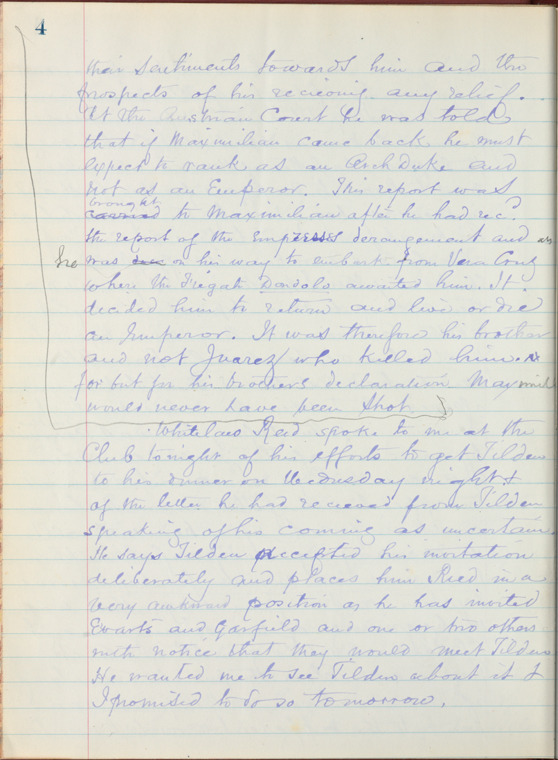 4
their sentiments towards him and the
prospects of his receiving any relief.
At the Austrian Court he was told
that if Maximilian came back he must
expect to rank as an Arch Duke and
not as an Emperor. This report was
brought
carried to Maximilian after he had rec.d
the report of the Empresses derangement and as
he was on his way to embark from Vera Cruz
where the Fregatt Dandolo awaited him. It
decided him to return and live or die
an Emperor. It was therefore his brother
and not Juarez who killed him.
for but for his brothers declaration Maximil
would never have been shot
Whitelaw Reid spoke to me at the
Club tonight of his efforts to get Tilden
to his dinner on Wednesday night &
of the letter he had received from Tilden
speaking of his coming as uncertain.
He says Tilden accepted his invitation
deliberately and places him Reid in a
very awkward position as he has invited
Evarts and Garfield and one or two others
with notice that they would meet Tilden
He wanted me to see Tilden about it &
I promised to do so tomorrow.